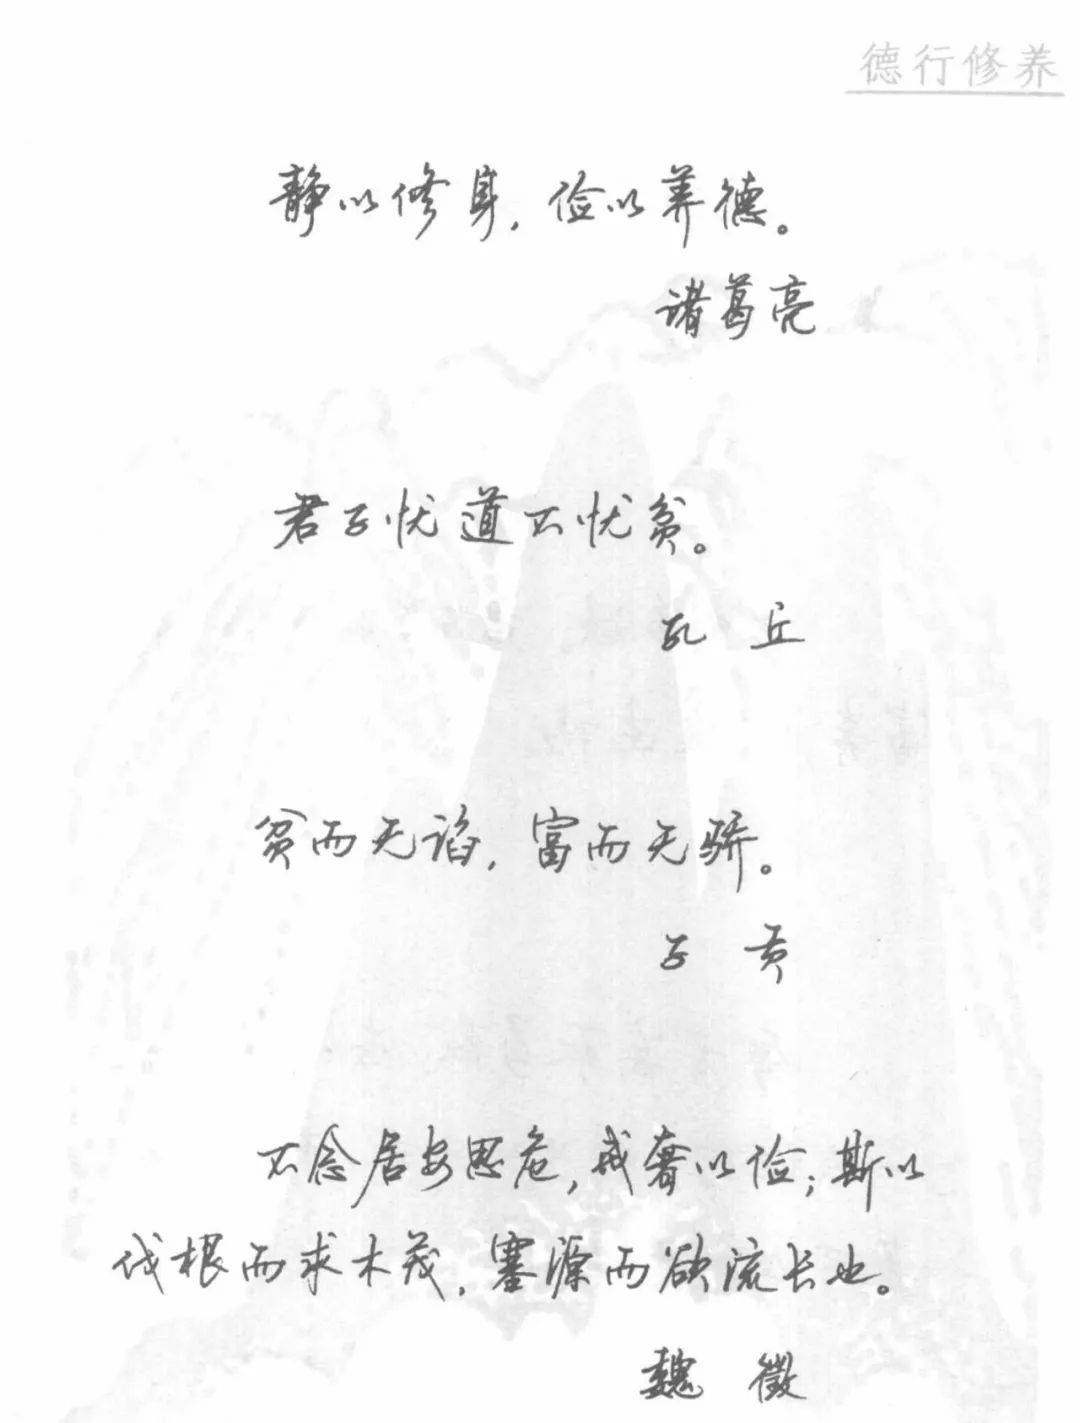 德行修养
静以修身，俭以养德。
诸葛亮
君子忧道不忧贫。
孔 丘
贫而无谄，富而无骄。
子 贡
不念居安思危，戒奢以俭；斯以
伐根而求木茂，塞源而欲流长也。
魏 徵